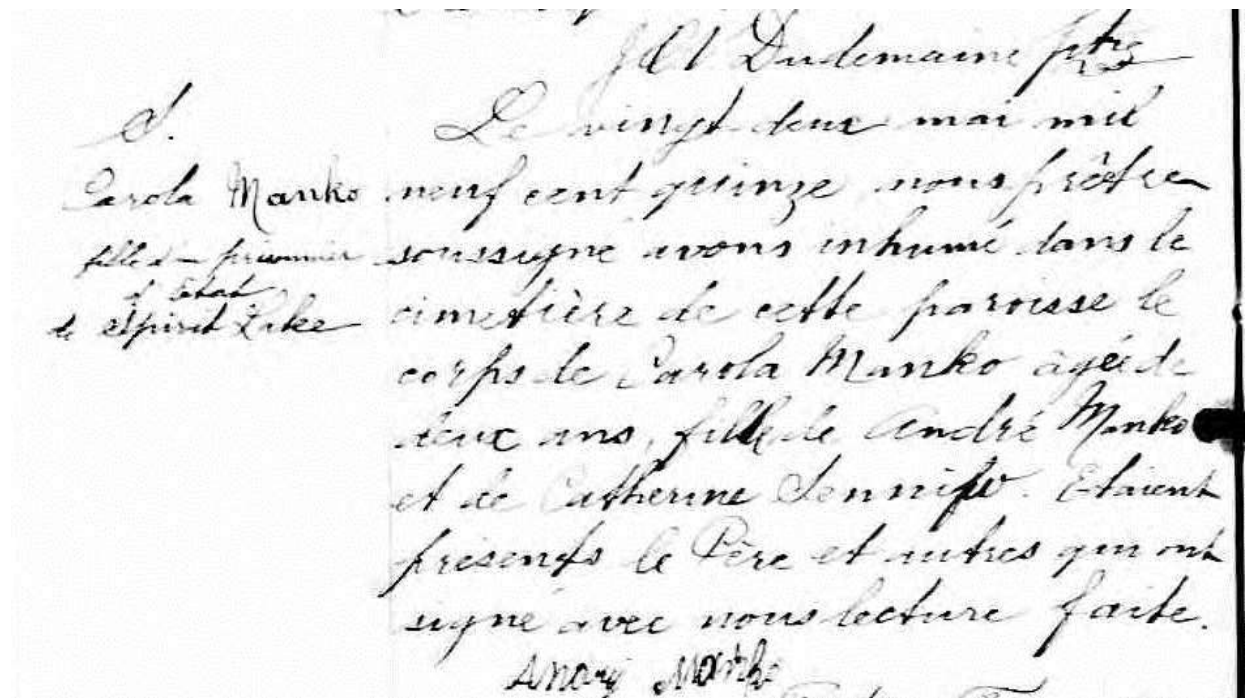 Dudemaine ptre
S.
Carola Manko
fille d'un prisonnier
d'Etat
de Spirit Lake
Le vingt deux mai mil
neuf cent quinze nous prêtre
soussigné avons inhumé dans le
cimetière de cette paroisse le
corps de Carola Manko agée de
deux ans, fille de André Manko
et de Catherine Etaient
présents le Père et autres qui ont
signé avec nous lecture faite.
Manko